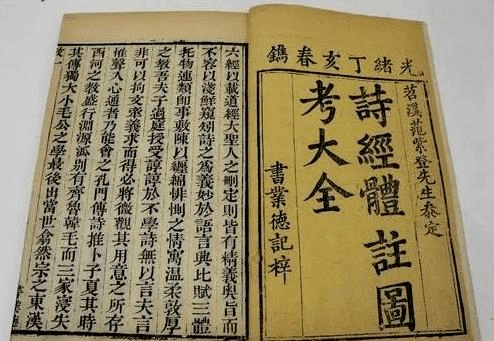 光緒丁亥春鐫
苕溪范紫登先生叅定
詩經體註圖
考大全
書業德記梓
六經以載道經大聖人之刪定則皆有精義奧旨而
不容以淺鮮窺矧詩之爲義妙於語言興比賦三體
托物連類即事敷陳以纏綿悱惻之情寓温柔敦厚
之教吾夫子過庭授受諄諄於不學詩無以言夫言
非可以拘文索義求而得必將微觀其用意之所存
推聲入心通者乃能會之孔門傳詩推卜子夏其時
西河之教盛行淵源派别有齊魯韓毛而三家寖失
其傳獨大小毛公之學最後出當世翕然宗之東漢